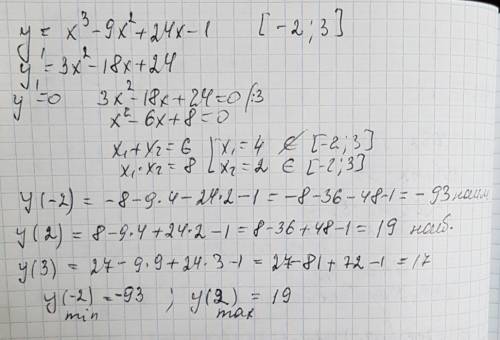 y = x³-9x²+24x-1 [-2;3]
y' = 3x²-18x+24
y'=0 3x²-18x+24=0 /:3
x²-6x+8=0
x₁+x₂=6 [x₁=4 ∉ [-2;3]
x₁·x₂=8 [x₂=2 ∈ [-2;3]
y(-2) = -8-9·4-24·2-1=-8-36-48-1=-93 наим
y(2)=8-9·4+24·2-1=8-36+48-1=19 наиб.
y(3)=27-9·9+24·3-1=27-81+72-1=17
y(-2)=-93 ; y(2)=19
min max